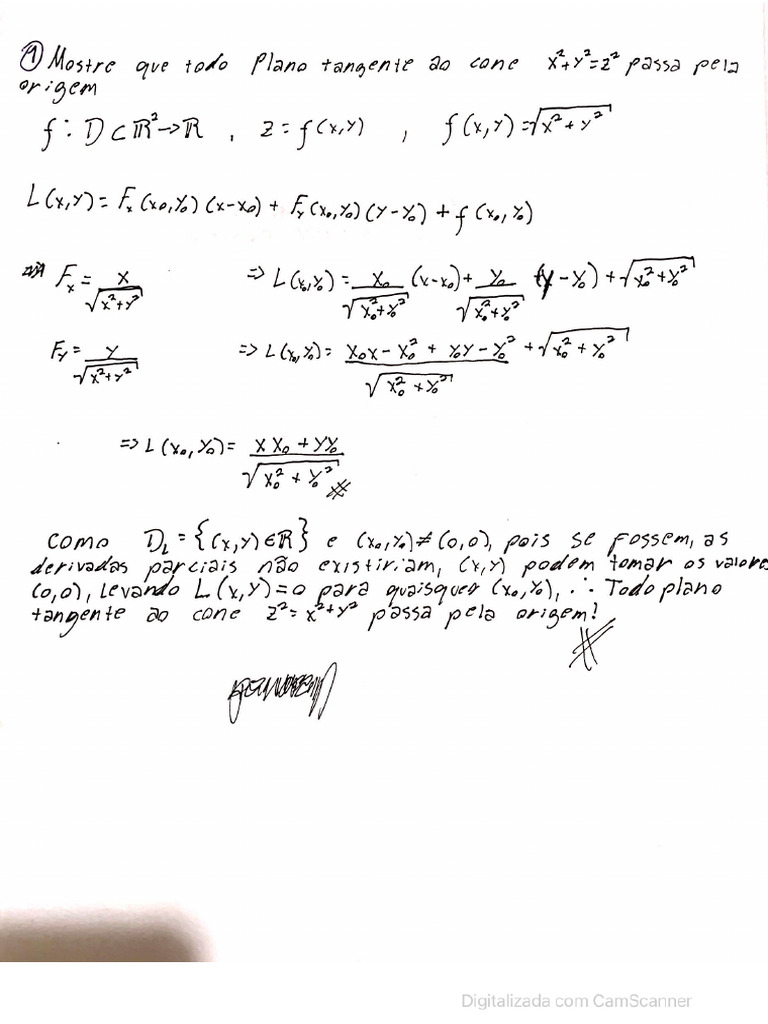 ① Mostre que todo Plano tangente ao cone x²+y²=z² passa pela
origem
f: D⊂ℝ²→ℝ , z = f(x,y) , f(x,y)=√(x²+y²)
L(x,y) = Fx(x₀,y₀)(x-x₀) + Fy(x₀,y₀)(y-y₀) + f(x₀,y₀)
Fx = x/√(x²+y²) => L(x₀,y₀) = x₀/√(x₀²+y₀²) (x-x₀) + y₀/√(x₀²+y₀²) (y-y₀) + √(x₀²+y₀²)
Fy = y/√(x²+y²) => L(x₀,y₀) = (x₀x - x₀² + y₀y - y₀²)/√(x₀²+y₀²) + √(x₀²+y₀²)
=> L(x₀,y₀) = (xx₀ + yy₀)/√(x₀²+y₀²) #
como D_L = {(x,y)∈ℝ} e (x₀,y₀)≠(0,0), pois se fossem, as
derivadas parciais não existiriam, (x,y) podem tomar os valores
(0,0), levando L(x,y)=0 para quaisquer (x₀,y₀), ∴ Todo plano
tangente ao cone z²=x²+y² passa pela origem!
#
Digitalizada com CamScanner